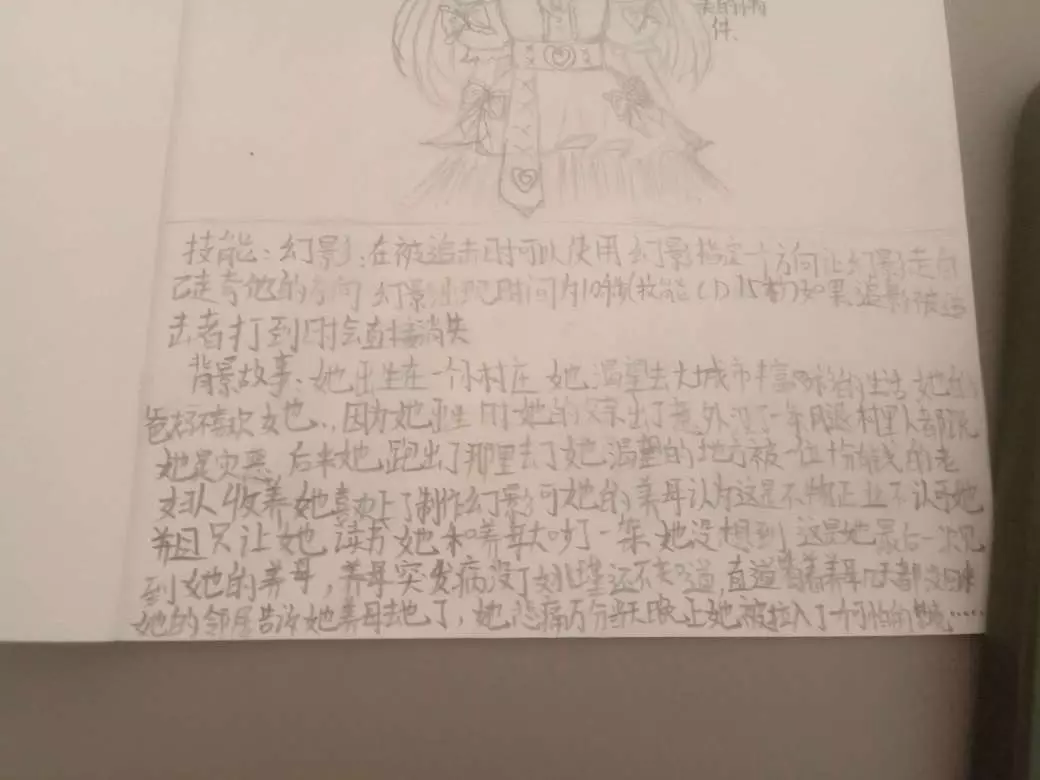 件、
技能:幻影:在被追击时可以使用幻影指定一个方向让幻影走自
己走夸他的方向 幻影出现时间为10秒(技能CD15秒)如果幻影被追
击者打到时会直接消失
背景故事:她出生在一个小村庄 她渴望去大城市丰富多彩的生活 她的
爸妈不喜欢女也..因为她出生时她的父亲出了意外没了一条月退村里人都说
她是灾恶 后来她跑出了那里去了她渴望的地方被一位十分有钱的老
妇人收养她喜欢上了制作幻影可她的养母认为这是不物正业不认可她
并且只让她读书她和养母大吵了一架她没想到这是她最后一次见
到她的养母,养母突发病没了 她还不知道,直道 养母几天都没回来
她的邻居告诉她养母去也了,她悲痛万分当天晚上她被拉入了一个可怕的……